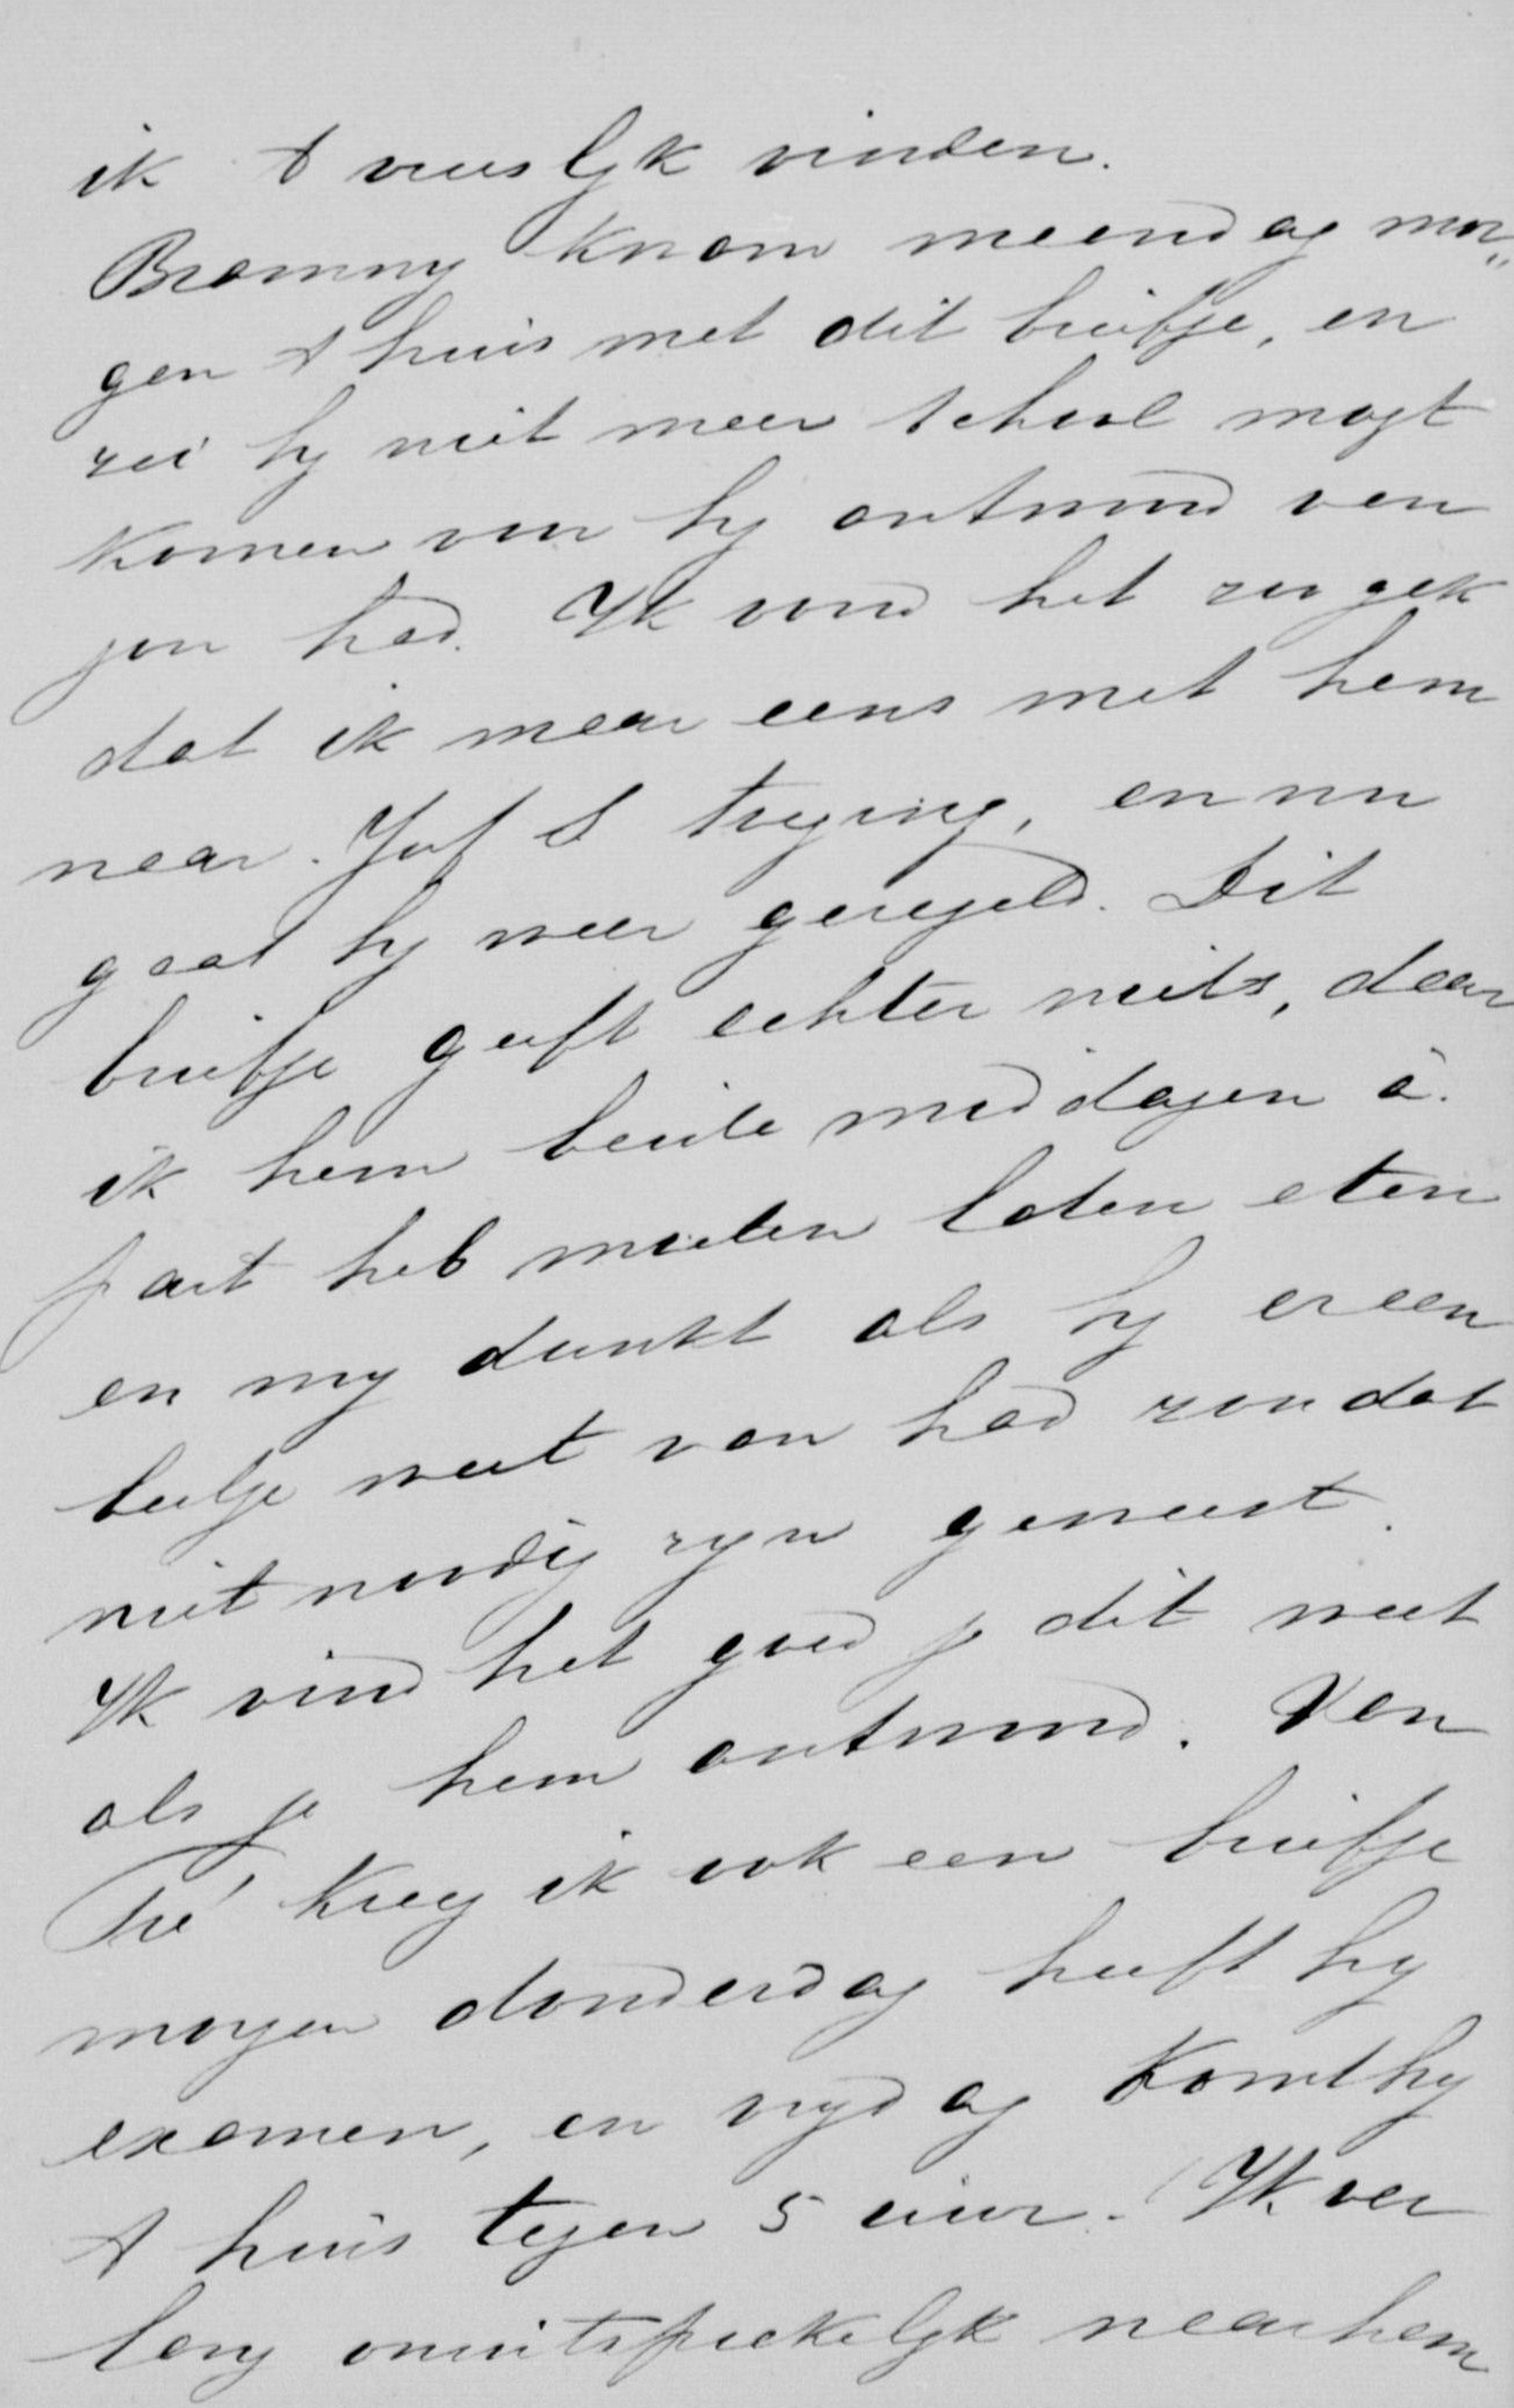 ik t vreeslyk vinden.
Brammy kwam maandag mor„
gen t huis met dit briefje, en
zei hy niet meer school mogt
komen voor hy antwoord van
jou had. Ik vond het zoo gek
dat ik maar eens met hem
naar Juf S toeging, en nu
gaat hy weer geregeld. Dit
briefje geeft echter niets, daar
ik hem beide middagen à.
part heb moeten laten eten
en my dunkt als hy er een
beetje weet van had zou dat
niet noodig zyn geweest.
Ik vind het goed je dit weet
als je hem antwoord. Van
kreeg ik ook een briefje
morgen donderdag heeft hy
examen, en vrydag komt hy
t huis tegen 5 uur. Ik ver
lang onuitsprekelyk naar hem